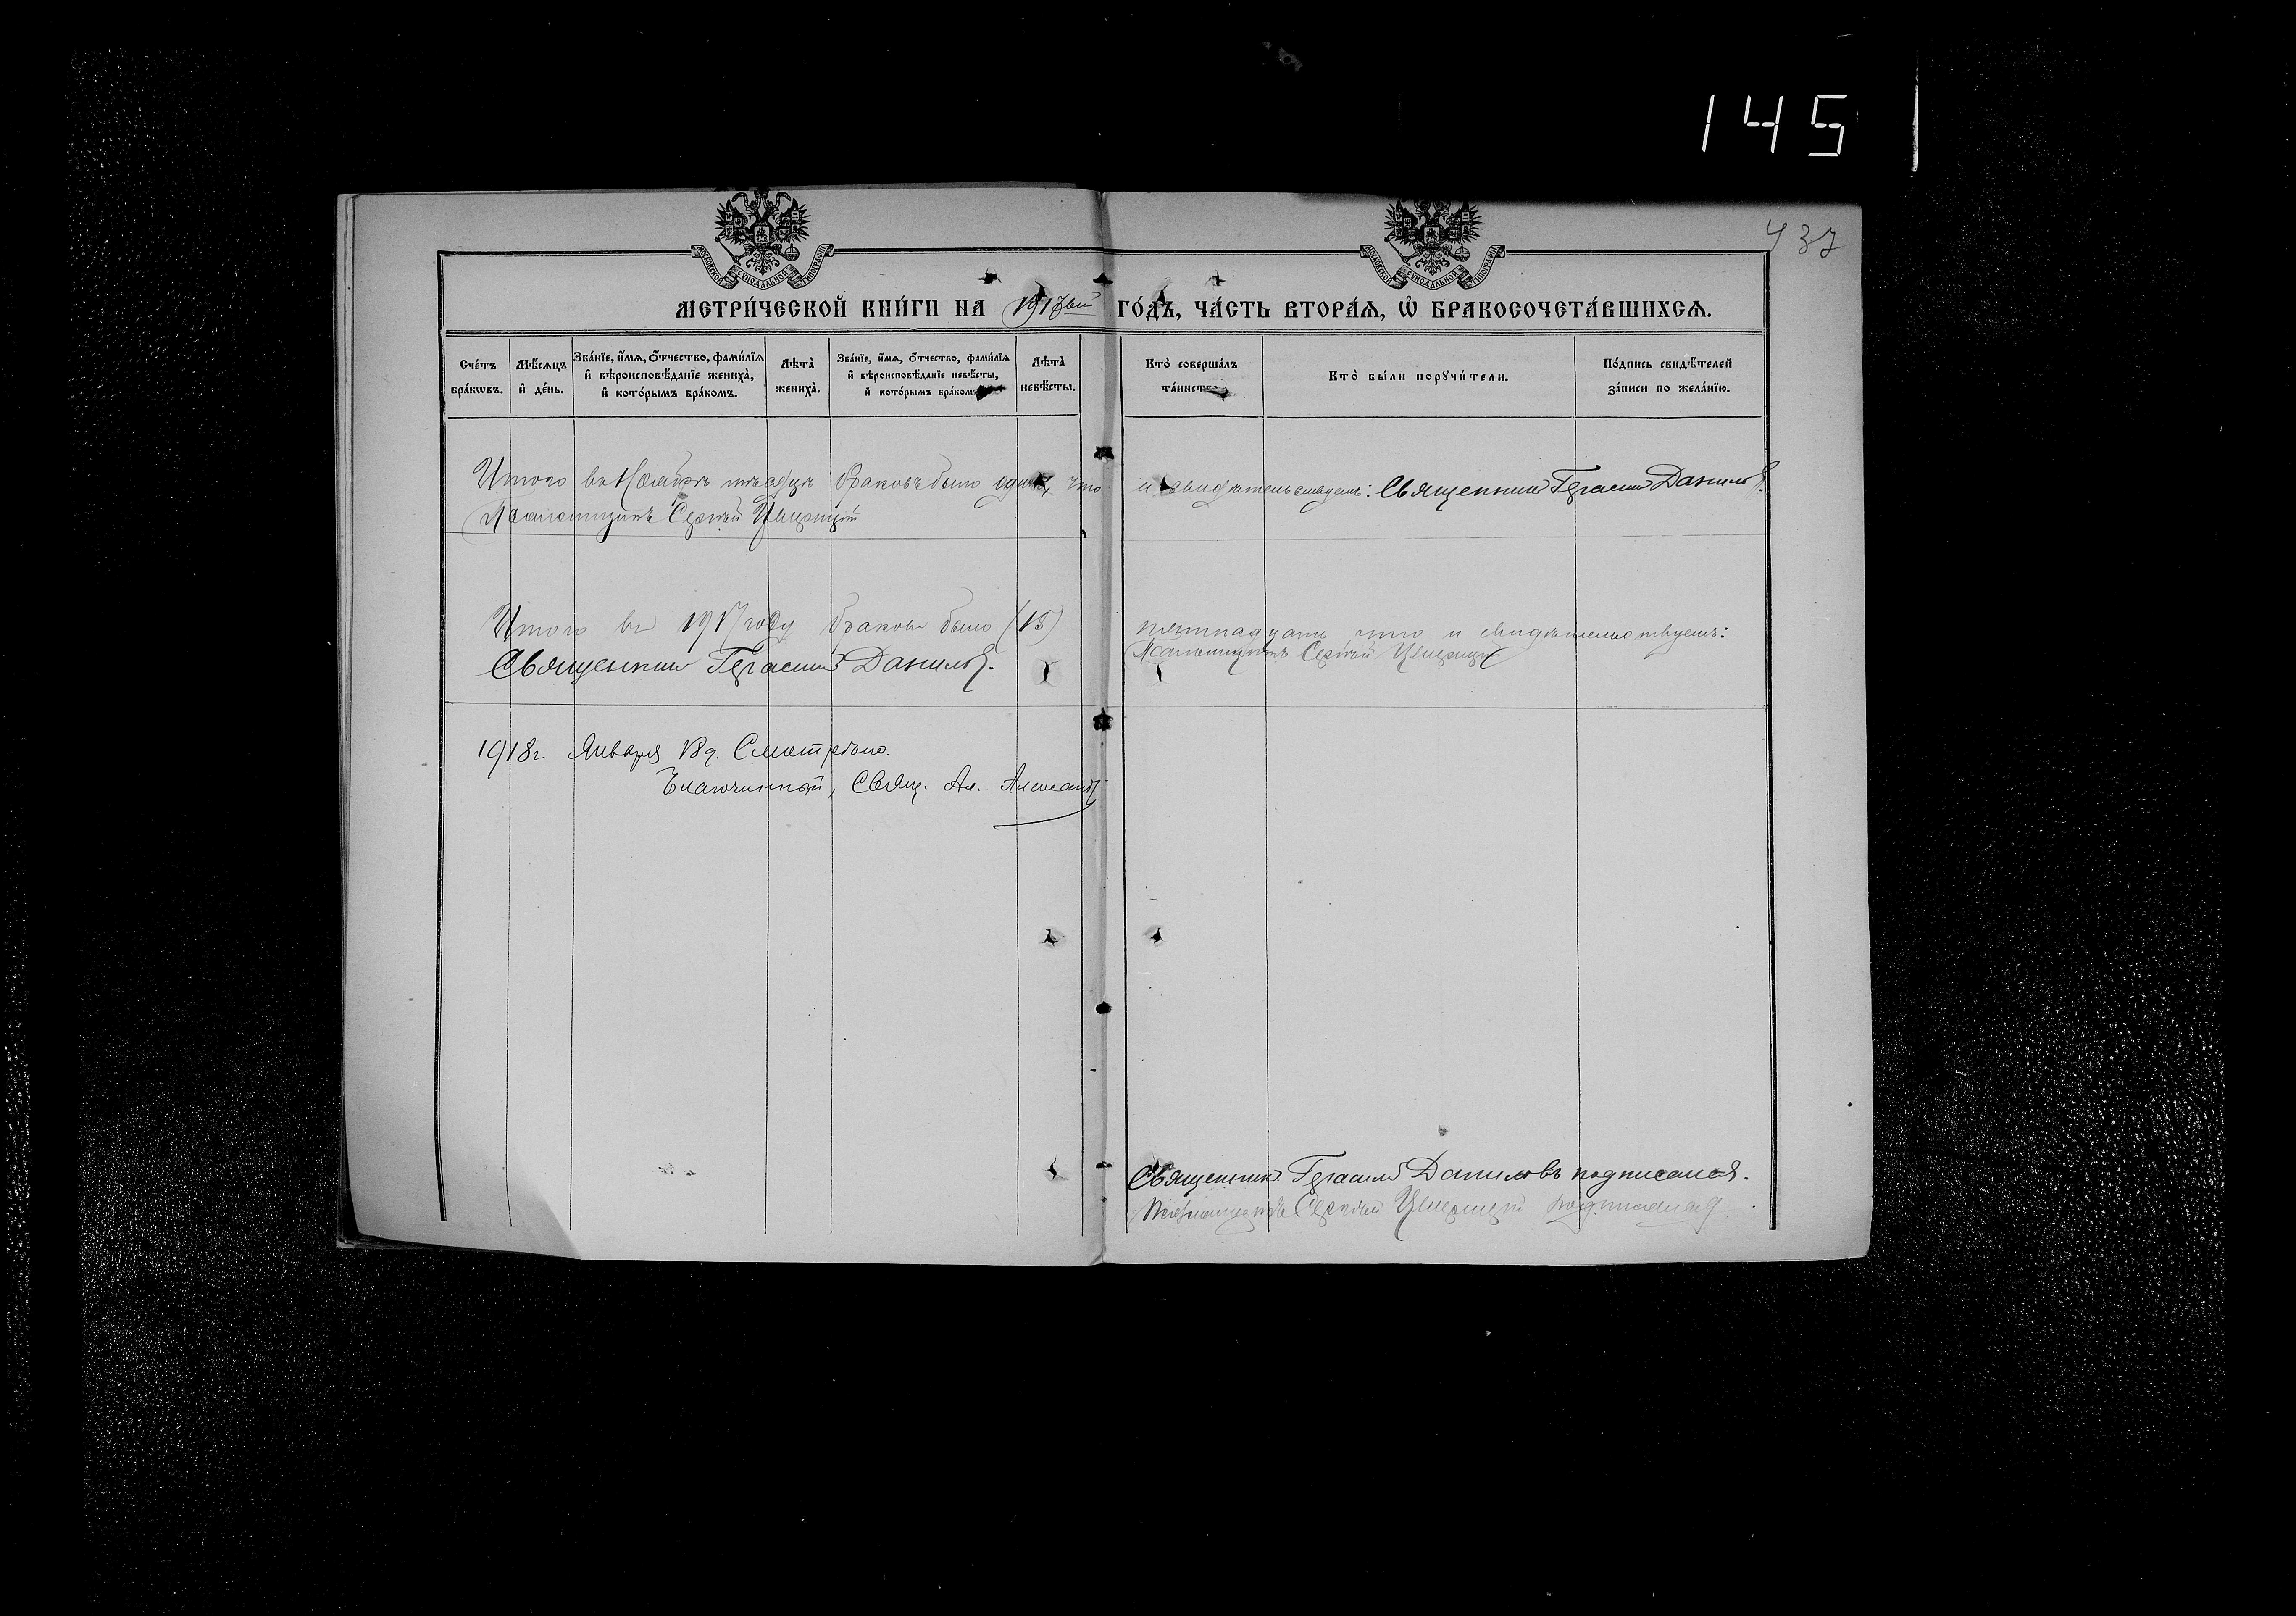 145
437
МОСКОВСКОЙ СУНОДАЛЬНОЙ ТИПОГРАФІИ
МОСКОВСКОЙ СУНОДАЛЬНОЙ ТИПОГРАФІИ
МЕТРИ́ЧЕСКОЙ КНИ́ГИ НА 1917ый ГО́ДЪ, ЧА́СТЬ ВТОРА́Я, Ѡ БРАКОСОЧЕТА́ВШИХСЯ.
Сче́тъ бра́кѡвъ.
Мѣ́сяцъ и де́нь.
Зва́нїе, и́мя, ѻ́тчество, фами́лїя и вѣроисповѣ́данїе жениха̀, и кото́рымъ бра́комъ.
Лѣта̀ жениха̀.
Зва́нїе, и́мя, ѻ́тчество, фами́лїя и вѣроисповѣ́данїе невѣ́сты, и кото́рымъ бра́комъ.
Лѣта̀ невѣ́сты.
Кто̀ соверша́лъ та́инство.
Кто̀ бы́ли порꙋчи́тели.
По́дпись свидѣ́телей за́писи по жела́нїю.
Итого въ Ноябрѣ мѣсяцѣ браковъ было одинъ, что и свидѣтельствуемъ: Священникъ Герасимъ Даниловъ.
Псаломщикъ Сергѣй
Итого въ 1917 году браковъ было (15) пятнадцать что и свидѣтельствуемъ:
Священникъ Герасимъ Даниловъ. Псаломщикъ Сергѣй
1918 г. Января 18 д. Смотрѣно.
Благочинный, Свящ. Ал.
Священникъ Герасимъ Даниловъ подписался.
Псаломщикъ Сергѣй подписался